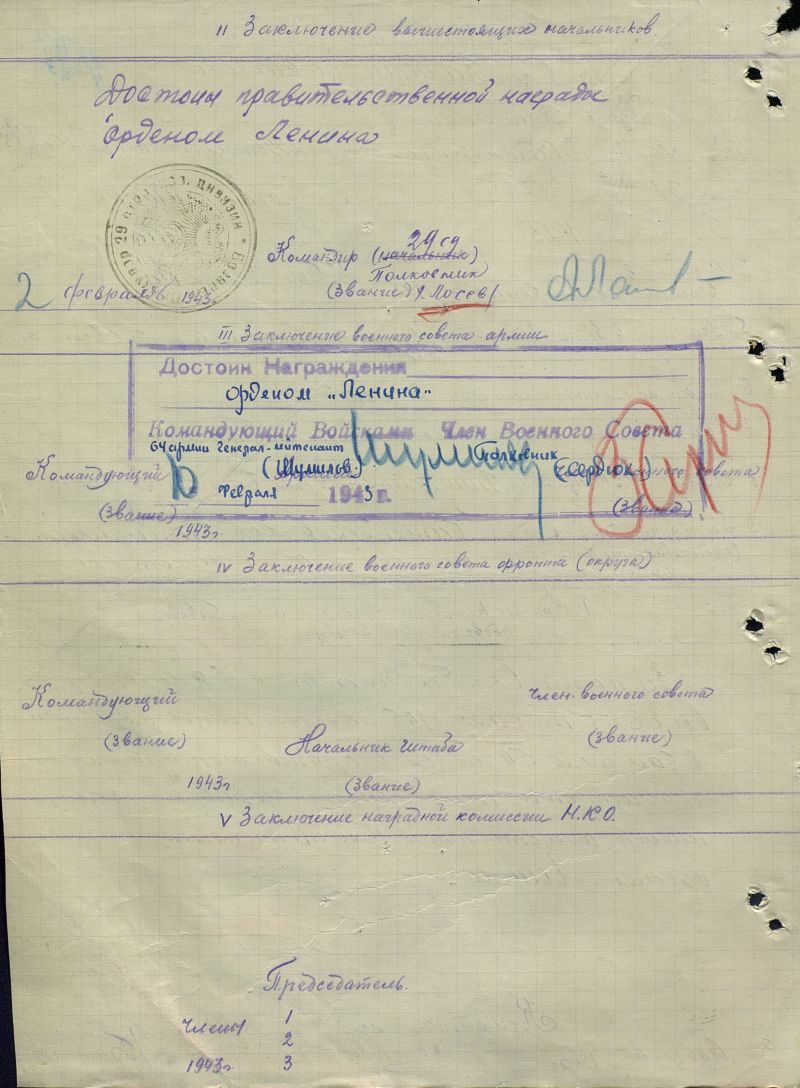 II Заключение вышестоящих начальников
Достоин правительственной награды
орденом Ленина
29 сд
Командир (начальник)
Полковник
(Звание) /Лосев/
2 февраля 1943
III Заключение военного совета армии
Достоин Награждения
орденом „Ленина"
Командующий Войсками Член Военного Совета
64 армии Генерал-лейтенант Полковник
(Шумилов) (Сердюк)
Командующий совета
10 февраля 1943 г.
(Звание) (Звание)
1943г
IV Заключение военного совета фронта (округа)
Командующий член военного совета
(Звание) (Звание)
Начальник штаба
1943г (Звание)
V Заключение наградной комиссии Н.К.О.
Председатель.
Члены 1
2
1943г 3